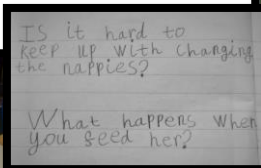 Is it hard to
keep up with changing
the nappies?
What happens when
you feed her?